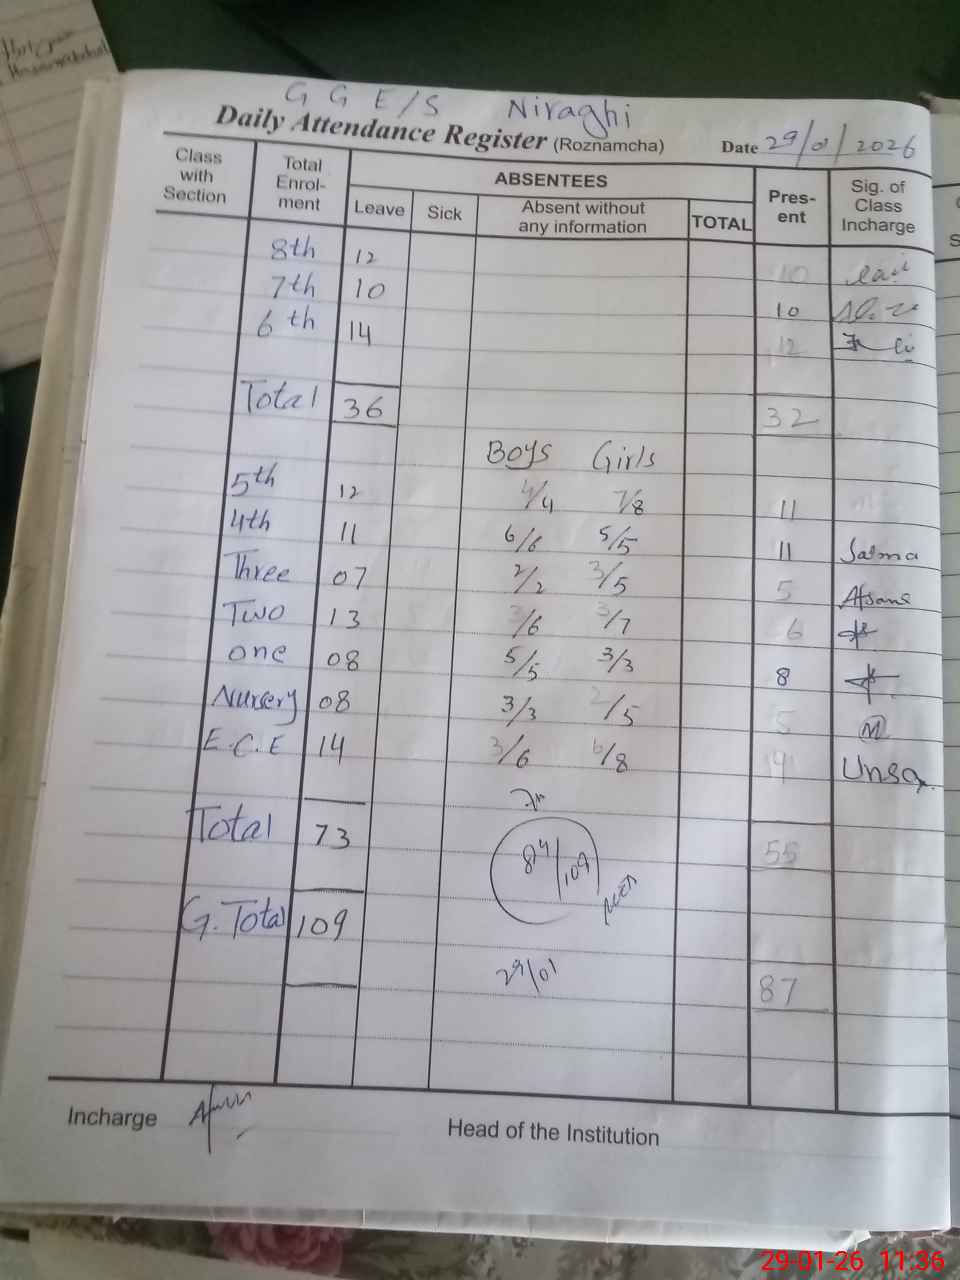 G G E/S Niraghi
Daily Attendance Register (Roznamcha) Date 29/01/2026
Class with Section
Total Enrol-ment
ABSENTEES
Leave Sick Absent without any information TOTAL
Pres-ent
Sig. of Class Incharge
8th 12 10
7th 10 10
6th 14 12
Total 36 32
Boys Girls
5th 12 4/4 7/8 11
4th 11 6/6 5/5 11 Salma
Three 07 2/2 3/5 5 Afsana
Two 13 3/6 3/7 6
one 08 5/5 3/3 8
Nursery 08 3/3 2/5 5
E.C.E 14 3/6 6/8
Total 73 55
84/109
G. Total 109
29/01
87
Incharge
Head of the Institution
29-01-26 11:36